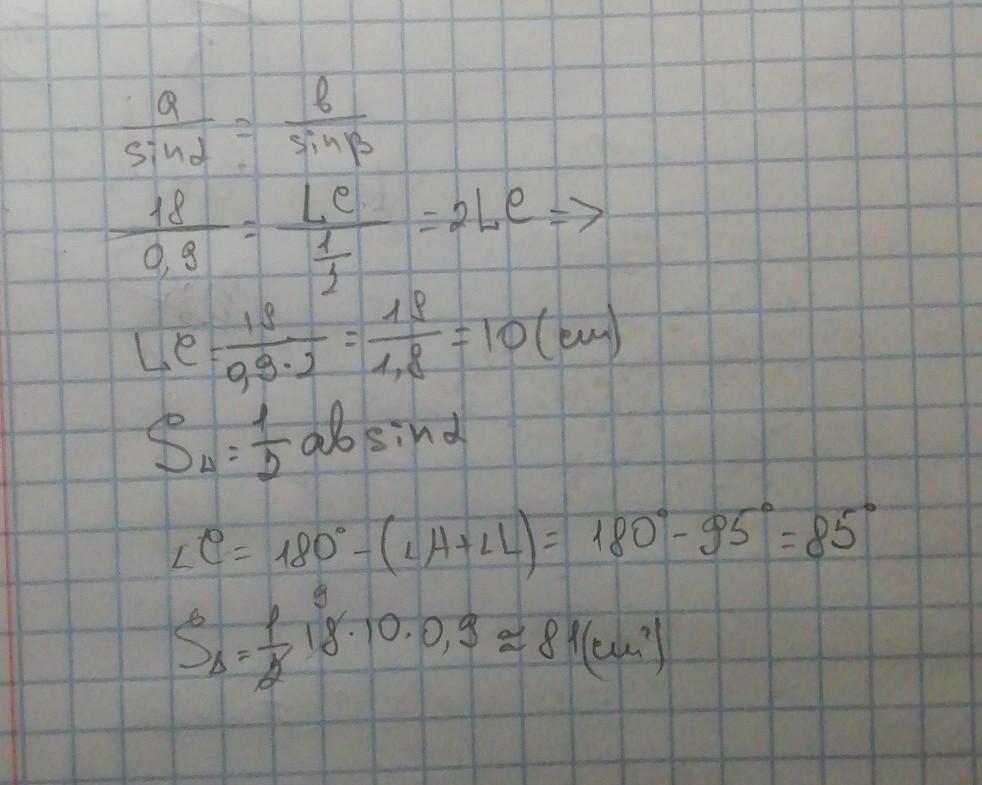 a/sinα = b/sinβ
18/0,9 = LC/(1/2) = 2LC =>
LC = 18/(0,9·2) = 18/1,8 = 10 (cm)
S△ = 1/2 ab sinα
∠C = 180° - (∠A+∠L) = 180° - 95° = 85°
S△ = 1/2 18·10·0,9 ≈ 81 (cm²)